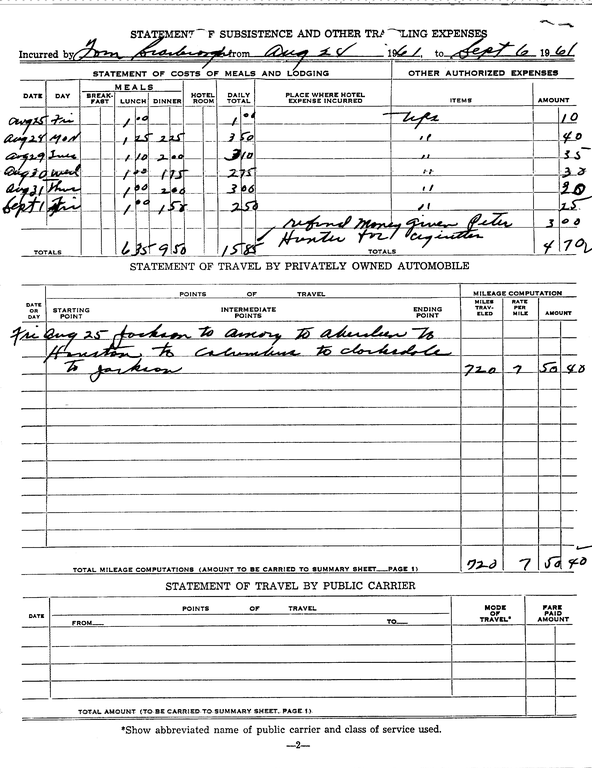 STATEMENT F SUBSISTENCE AND OTHER TRA LLING EXPENSES
Incurred by Tom Scarbrough from Aug 24 1961, to Sept 6 1961
STATEMENT OF COSTS OF MEALS AND LODGING OTHER AUTHORIZED EXPENSES
MEALS
DATE DAY BREAK-FAST LUNCH DINNER HOTEL ROOM DAILY TOTAL PLACE WHERE HOTEL EXPENSE INCURRED ITEMS AMOUNT
Aug 25 Fri 1 00 1 00 Tips 10
Aug 28 Mon 1 25 2 25 3 50 " 40
Aug 29 Tues 1 10 2 00 3 10 " 35
Aug 30 Wed 1 00 1 75 2 75 " 30
Aug 31 Thur 1 00 2 00 3 00 " 20
Sept 1 Fri 1 00 1 50 2 50 " 25
refund money given Peter 3 00
Hunter for cigarettes
TOTALS 6 35 9 50 15 85 TOTALS 4 70
STATEMENT OF TRAVEL BY PRIVATELY OWNED AUTOMOBILE
POINTS OF TRAVEL MILEAGE COMPUTATION
DATE OR DAY STARTING POINT INTERMEDIATE POINTS ENDING POINT MILES TRAV-ELED RATE PER MILE AMOUNT
Fri Aug 25 Jackson to Amory to Aberdeen to
Houston, to Columbus to Clarksdale
to Jackson 720 7 50 40
TOTAL MILEAGE COMPUTATIONS (AMOUNT TO BE CARRIED TO SUMMARY SHEET__PAGE 1) 720 7 50 40
STATEMENT OF TRAVEL BY PUBLIC CARRIER
DATE POINTS OF TRAVEL MODE OF TRAVEL* FARE PAID AMOUNT
FROM__ TO__
TOTAL AMOUNT (TO BE CARRIED TO SUMMARY SHEET, PAGE 1)
*Show abbreviated name of public carrier and class of service used.
—2—